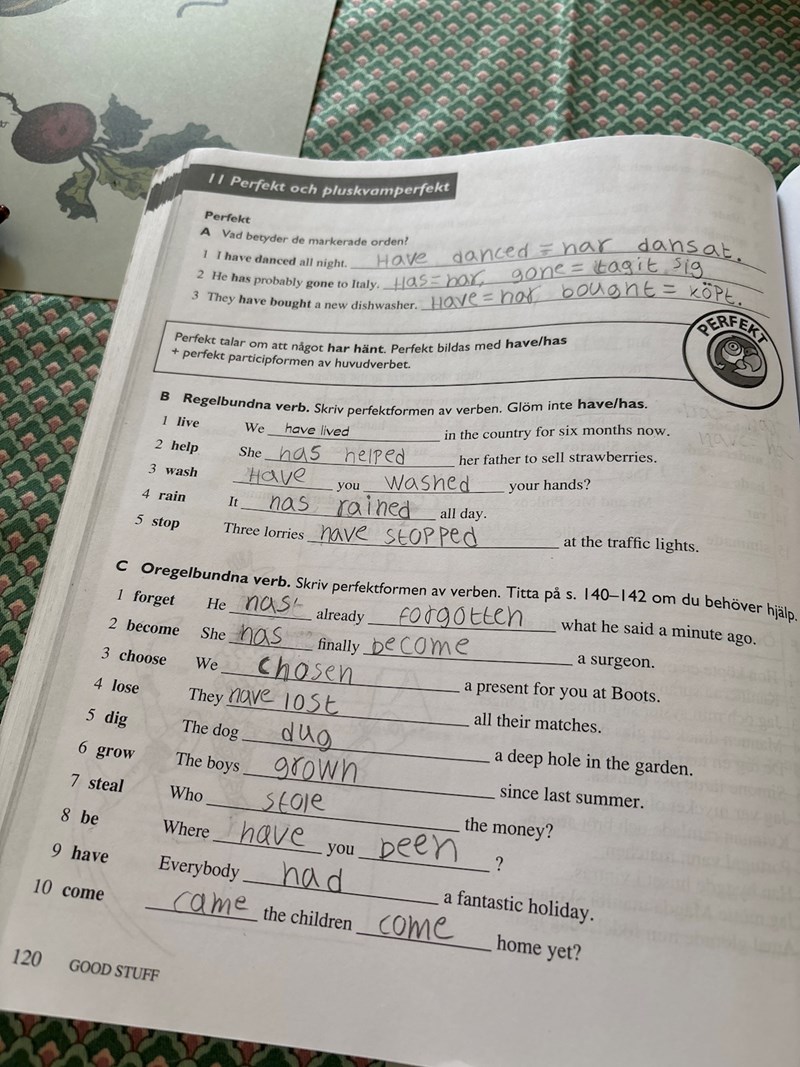 11 Perfekt och pluskvamperfekt
Perfekt
A Vad betyder de markerade orden?
1 I have danced all night. Have danced = har dansat.
2 He has probably gone to Italy. Has = har, gone = tagit sig
3 They have bought a new dishwasher. Have = har, bought = köpt.
PERFEKT
Perfekt talar om att något har hänt. Perfekt bildas med have/has
+ perfekt participformen av huvudverbet.
B Regelbundna verb. Skriv perfektformen av verben. Glöm inte have/has.
1 live We have lived in the country for six months now.
2 help She has helped her father to sell strawberries.
3 wash Have you washed your hands?
4 rain It has rained all day.
5 stop Three lorries have stopped at the traffic lights.
C Oregelbundna verb. Skriv perfektformen av verben. Titta på s. 140–142 om du behöver hjälp.
1 forget He has already forgotten what he said a minute ago.
2 become She has finally become a surgeon.
3 choose We chosen a present for you at Boots.
4 lose They have lost all their matches.
5 dig The dog dug a deep hole in the garden.
6 grow The boys grown since last summer.
7 steal Who stole the money?
8 be Where have you been ?
9 have Everybody had a fantastic holiday.
10 come came the children come home yet?
120 GOOD STUFF